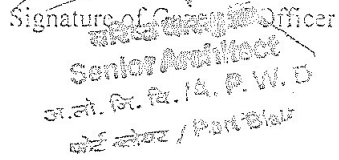 Signature of Gazetted Officer
वरिष्ठ वास्तुविद
Senior Architect
अ.लो. नि. वि. / A. P. W. D
पोर्ट ब्लेयर / Port Blair